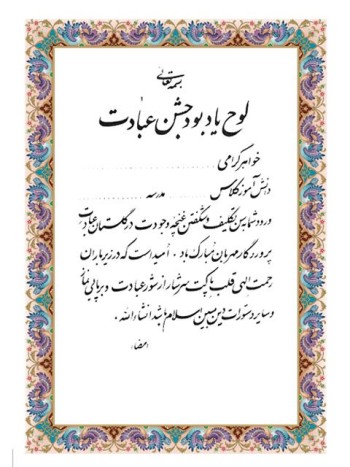 بسمه تعالی
لوح یادبود جشن عبادت
خواهر گرامی ....................
دانش آموز کلاس .......... مدرسه ..........
ورود شما به سن تکلیف و شکفتن غنچه وجودت در گلستان عبادت
پروردگار مهربان مبارک باد . امید است که در زیر باران
رحمت الهی قلب پاکت سرشار از شور عبادت و برپایی نماز
و سایر دستورات دین مبین اسلام باشد انشاءالله .
امضاء